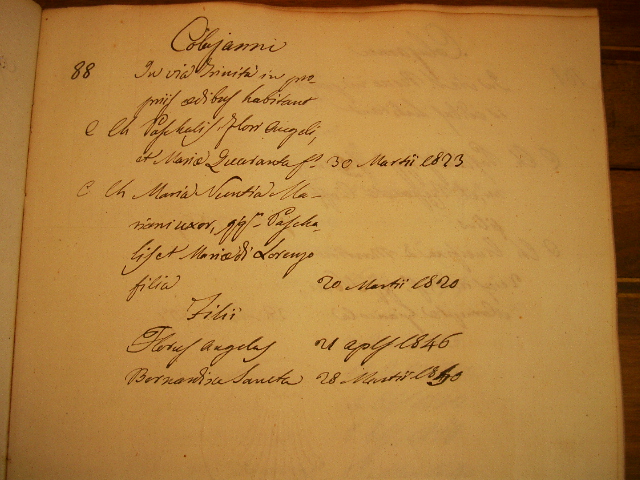 Cobijanni
88 In via Trinità in pro-
priis ædibus habitant
C Ch Paschalis Flori Angeli,
et Mariæ Quaranta f.s 30 Martii 1823
C Ch Maria Nuntia Ma-
rineni uxor, qq.m Pascha-
lis et Mariæ di Lorenzo
filia 20 Martii 1820
Filii
Florus Angelus 21 aplis 1846
Bernardina Sancta 28 Martii